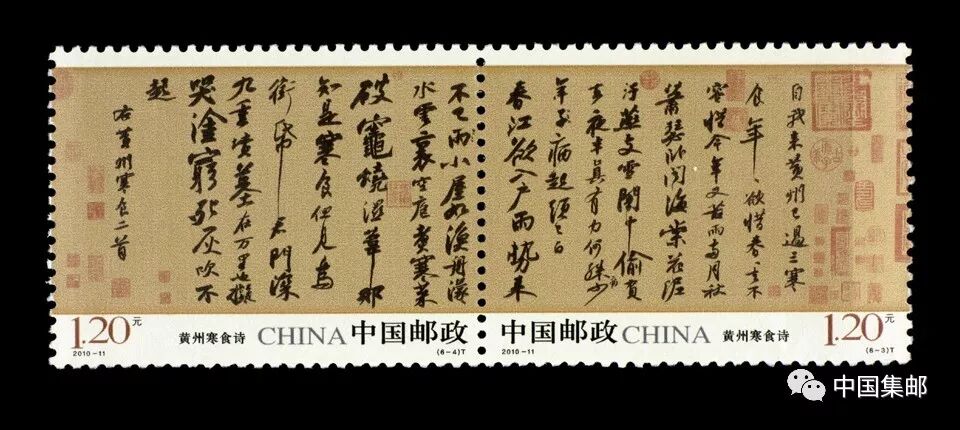 自我來黃州已過三寒
食年〻欲惜春〻去不
容惜今年又苦雨兩月秋
蕭瑟臥聞海棠花泥
汙燕支雪闇中偷負
去夜半真有力何殊病少
年子病起須已白
春江欲入戶雨勢來
不已雨小屋如漁舟濛〻
水雲裏空庖煮寒菜
破竈燒溼葦那
知是寒食但見烏
銜帋君門深
九重墳墓在万里也擬
哭塗窮死灰吹不
起
右黃州寒食二首
1.20元
2010-11
黄州寒食诗
CHINA
中国邮政
(6-4)T
中国邮政
CHINA
2010-11
黄州寒食诗
1.20元
(6-3)T
中国集邮